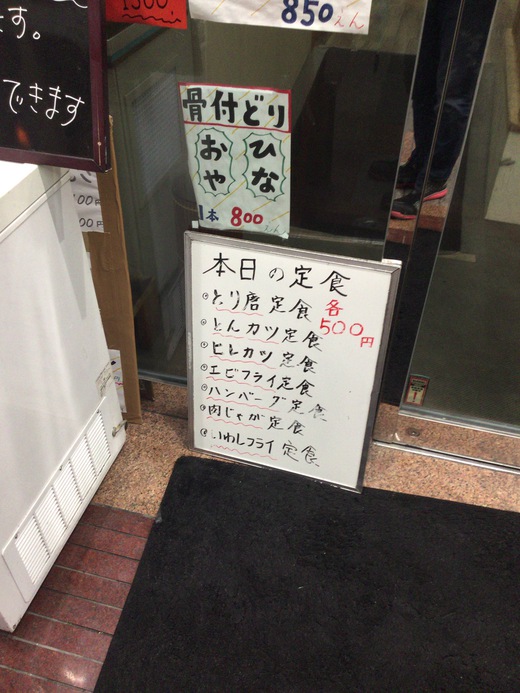 1300,
850えん
す。
できます
骨付どり
おや ひな
1本 800えん
00
00
本日の定食
各500円
とり唐定食
とんカツ定食
ヒレカツ定食
エビフライ定食
ハンバーグ定食
肉じゃが定食
いわしフライ定食